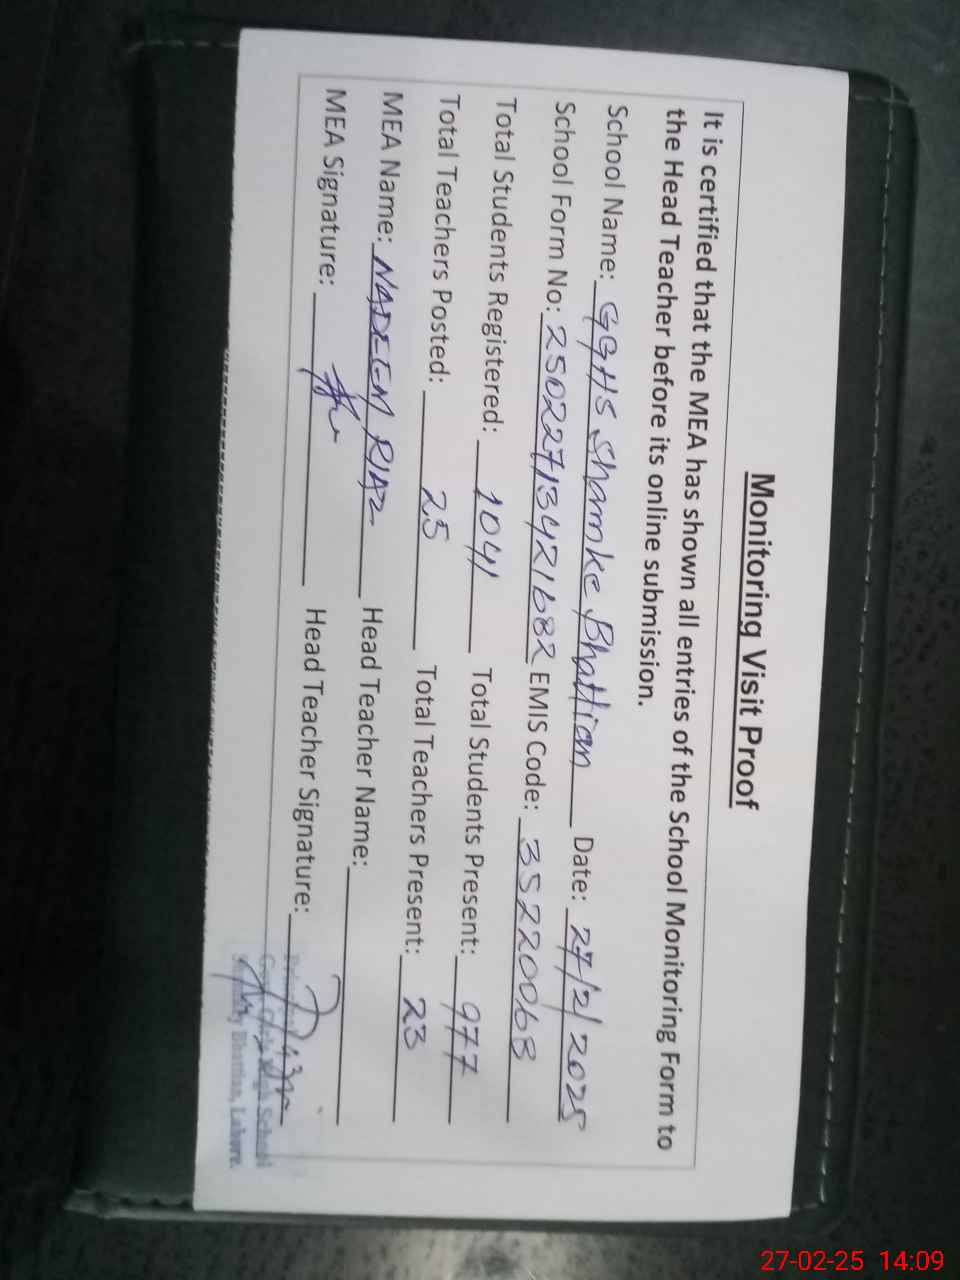 Monitoring Visit Proof
It is certified that the MEA has shown all entries of the School Monitoring Form to
the Head Teacher before its online submission.
School Name: GGHS Shamke Bhattian Date: 27/2/2025
School Form No: 25022713421682 EMIS Code: 35220068
Total Students Registered: 1041 Total Students Present: 977
Total Teachers Posted: 25 Total Teachers Present: 23
MEA Name: NADEEM RIAZ Head Teacher Name:
MEA Signature: Head Teacher Signature:
High School
Bhattian, Lahore.
27-02-25 14:09